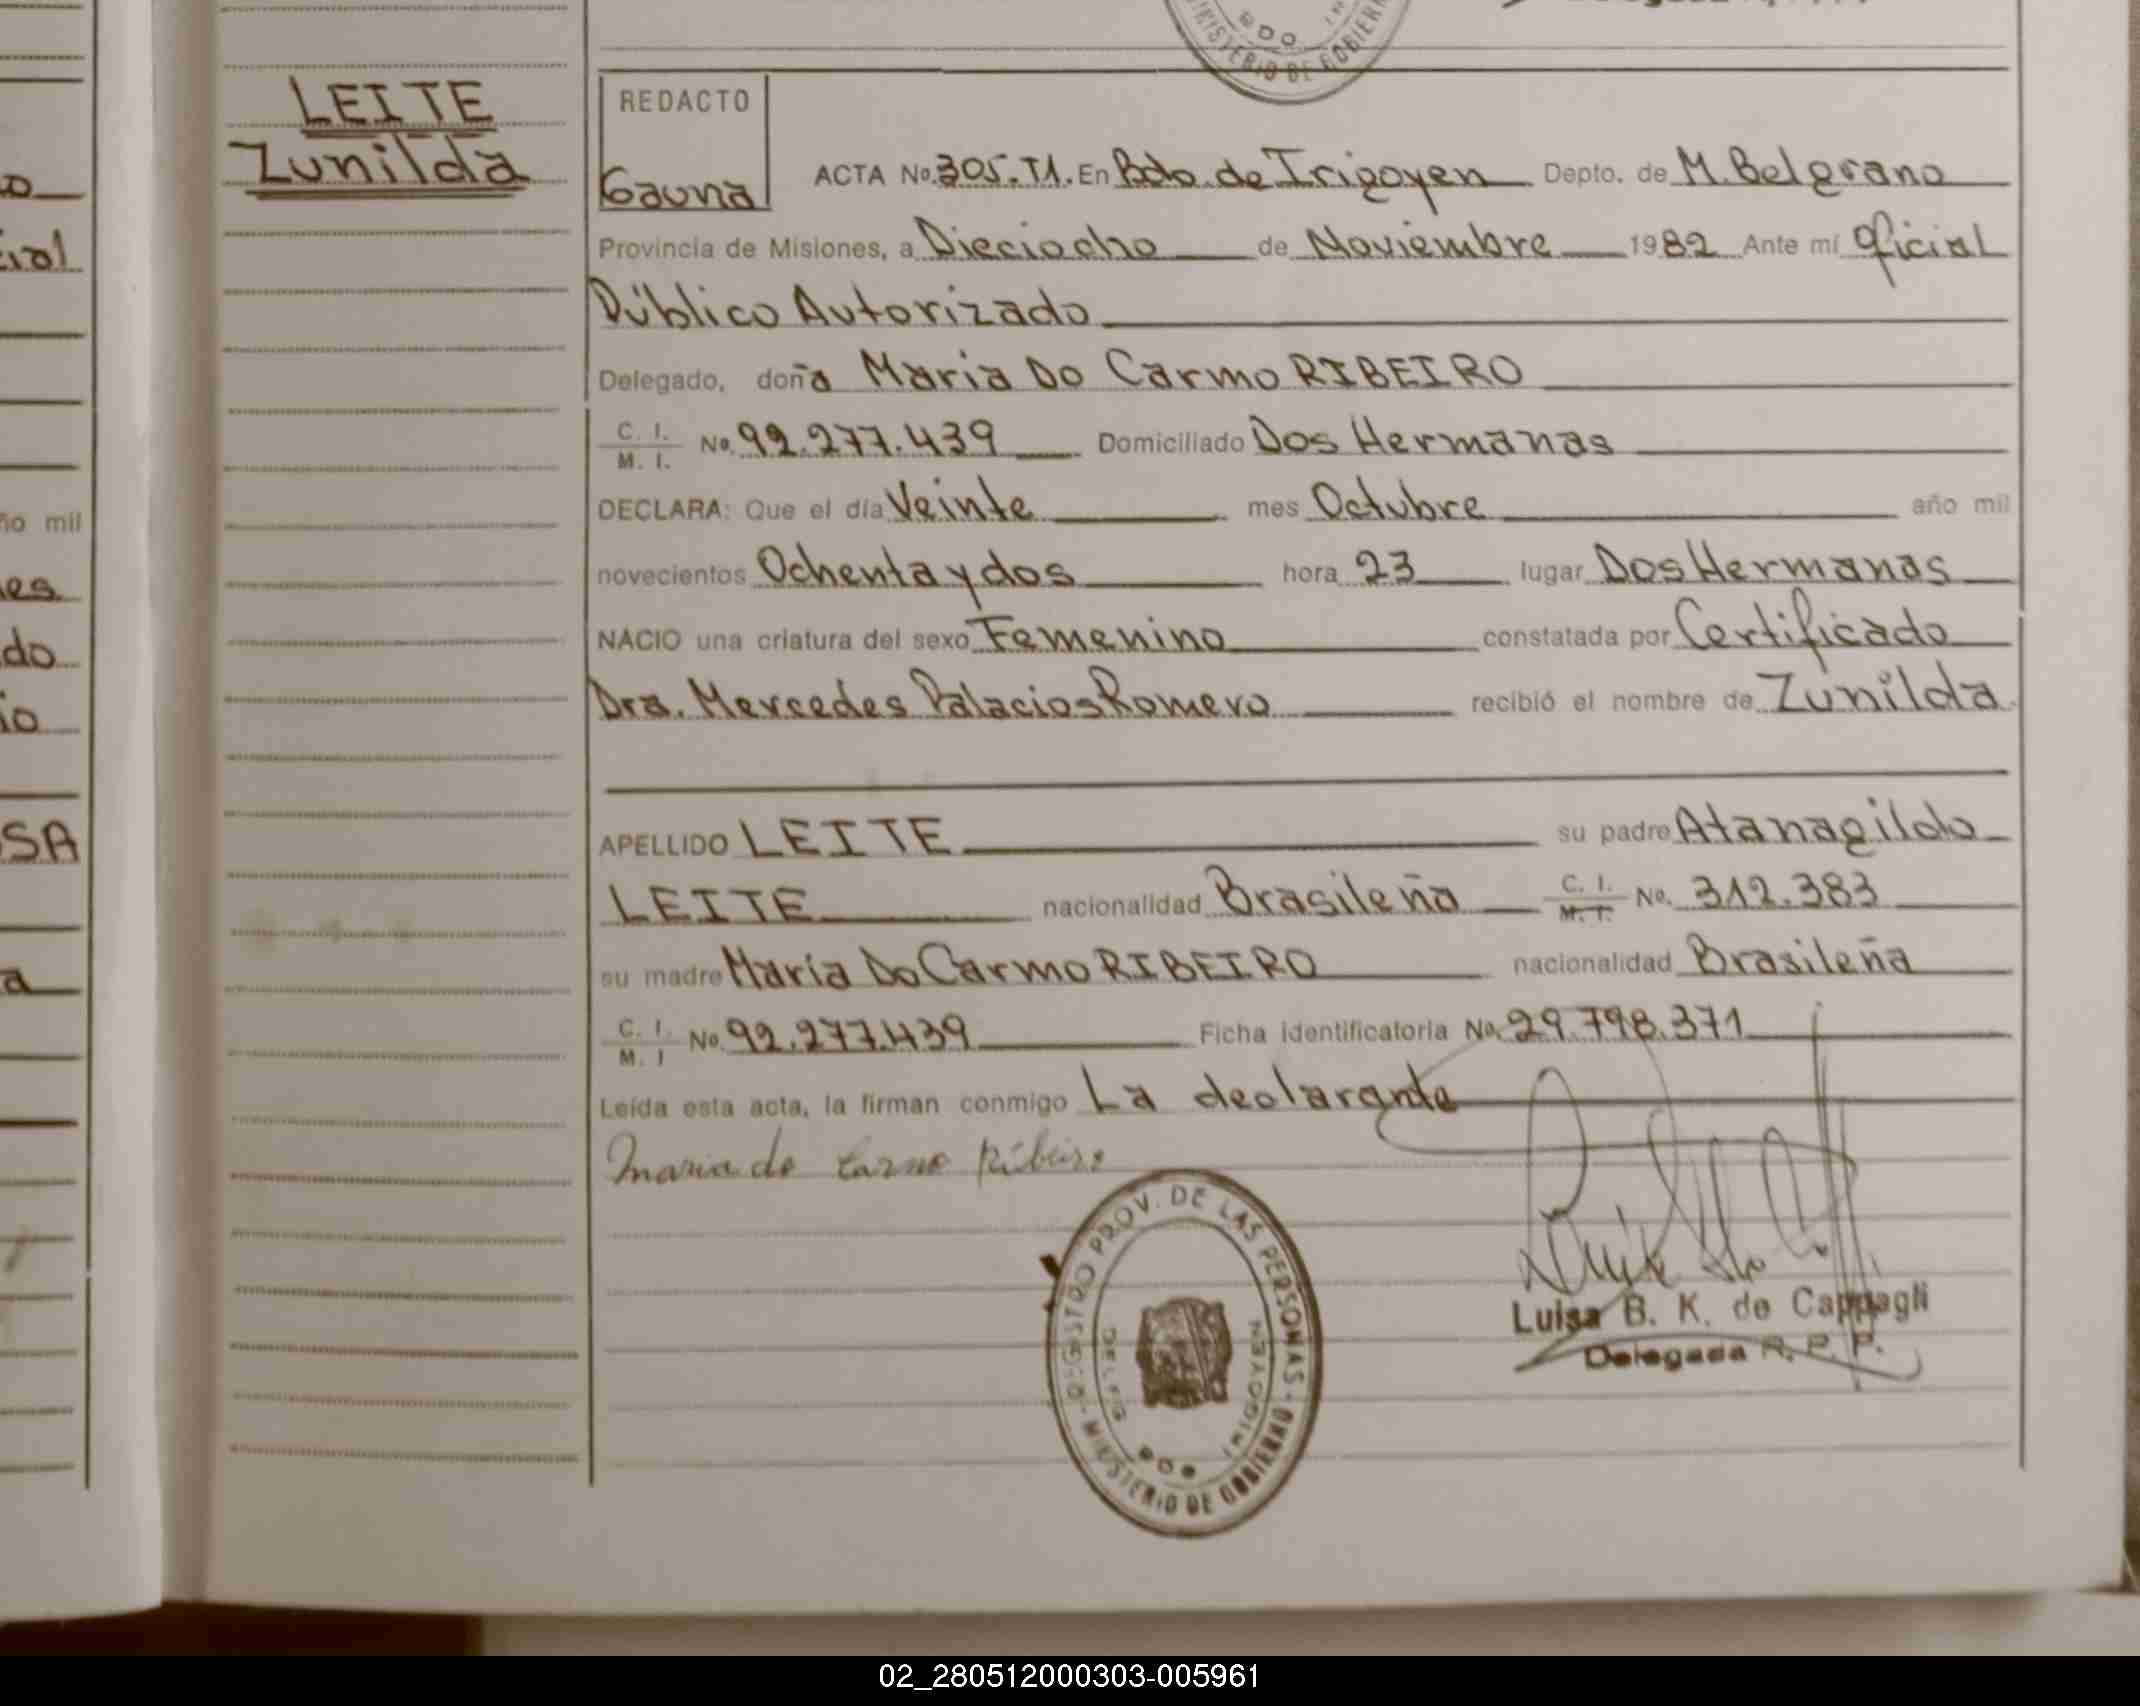 LEITE
Zunilda
REDACTO
Gauna
ACTA No. 305.T1. En Bdo. de Irigoyen Depto. de M. Belgrano
Provincia de Misiones, a Dieciocho de Noviembre 1982 Ante mí Oficial
Público Autorizado
Delegado, doña Maria Do Carmo RIBEIRO
C. I.
M. I. No. 92.277.439 Domiciliado Dos Hermanas
DECLARA: Que el día Veinte mes Octubre año mil
novecientos Ochenta y dos hora 23 lugar Dos Hermanas
NACIO una criatura del sexo Femenino constatada por Certificado
Dra. Mercedes Palacios Romero recibió el nombre de Zunilda
APELLIDO LEITE su padre Atanagildo
LEITE nacionalidad Brasileña C. I.
M. I. No. 312.383
su madre María Do Carmo RIBEIRO nacionalidad Brasileña
C. I.
M. I No. 92.277.439 Ficha identificatoria No. 29.798.371
Leída esta acta, la firman conmigo La declarante
Maria do Carmo Ribeiro
REGISTRO PROV. DE LAS PERSONAS - MINISTERIO DE GOBIERNO
BDO IRIGOYEN
Luisa B. K. de Cappagli
Delegada R. P. P.
ño mil
es
do
io
SA
a
MINISTERIO DE GOBIERN
02_280512000303-005961